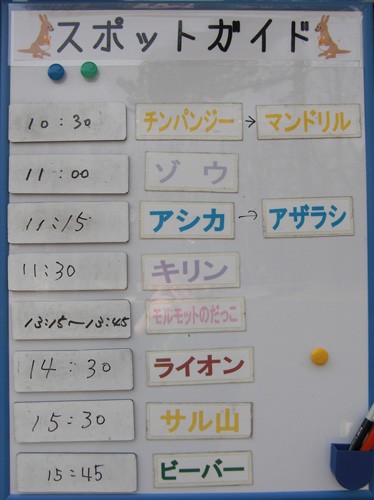 スポットガイド
10:30 チンパンジー→マンドリル
11:00 ゾウ
11:15 アシカ→アザラシ
11:30 キリン
13:15〜13:45 モルモットのだっこ
14:30 ライオン
15:30 サル山
15:45 ビーバー